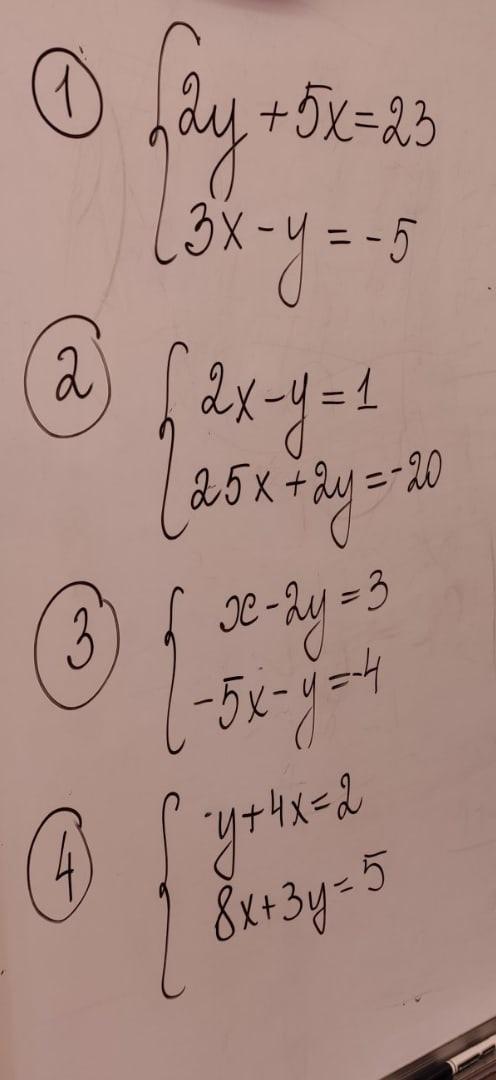 1 { 2y + 5x = 23
3x - y = -5
2 { 2x - y = 1
25x + 2y = -20
3 { x - 2y = 3
-5x - y = -4
4 { -y + 4x = 2
8x + 3y = 5